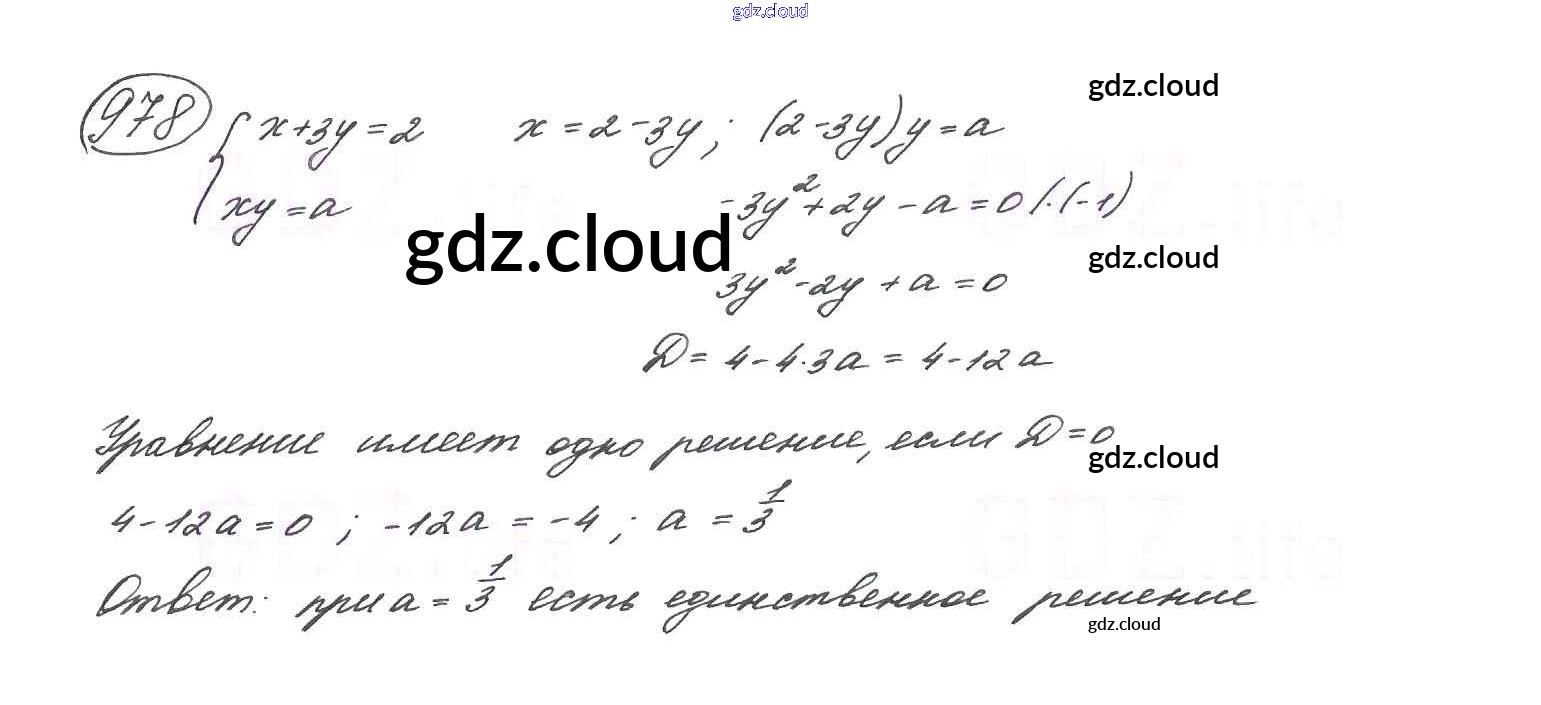 gdz.cloud
978 { x+3y=2   x=2-3y; (2-3y)y=a
gdz.cloud
xy=a   -3y²+2y-a=0 /·(-1)
gdz.cloud
gdz.cloud
3y²-2y+a=0
D=4-4·3a=4-12a
Уравнение имеет одно решение, если D=0
gdz.cloud
4-12a=0; -12a=-4; a=1/3
Ответ: при a=1/3 есть единственное решение
gdz.cloud